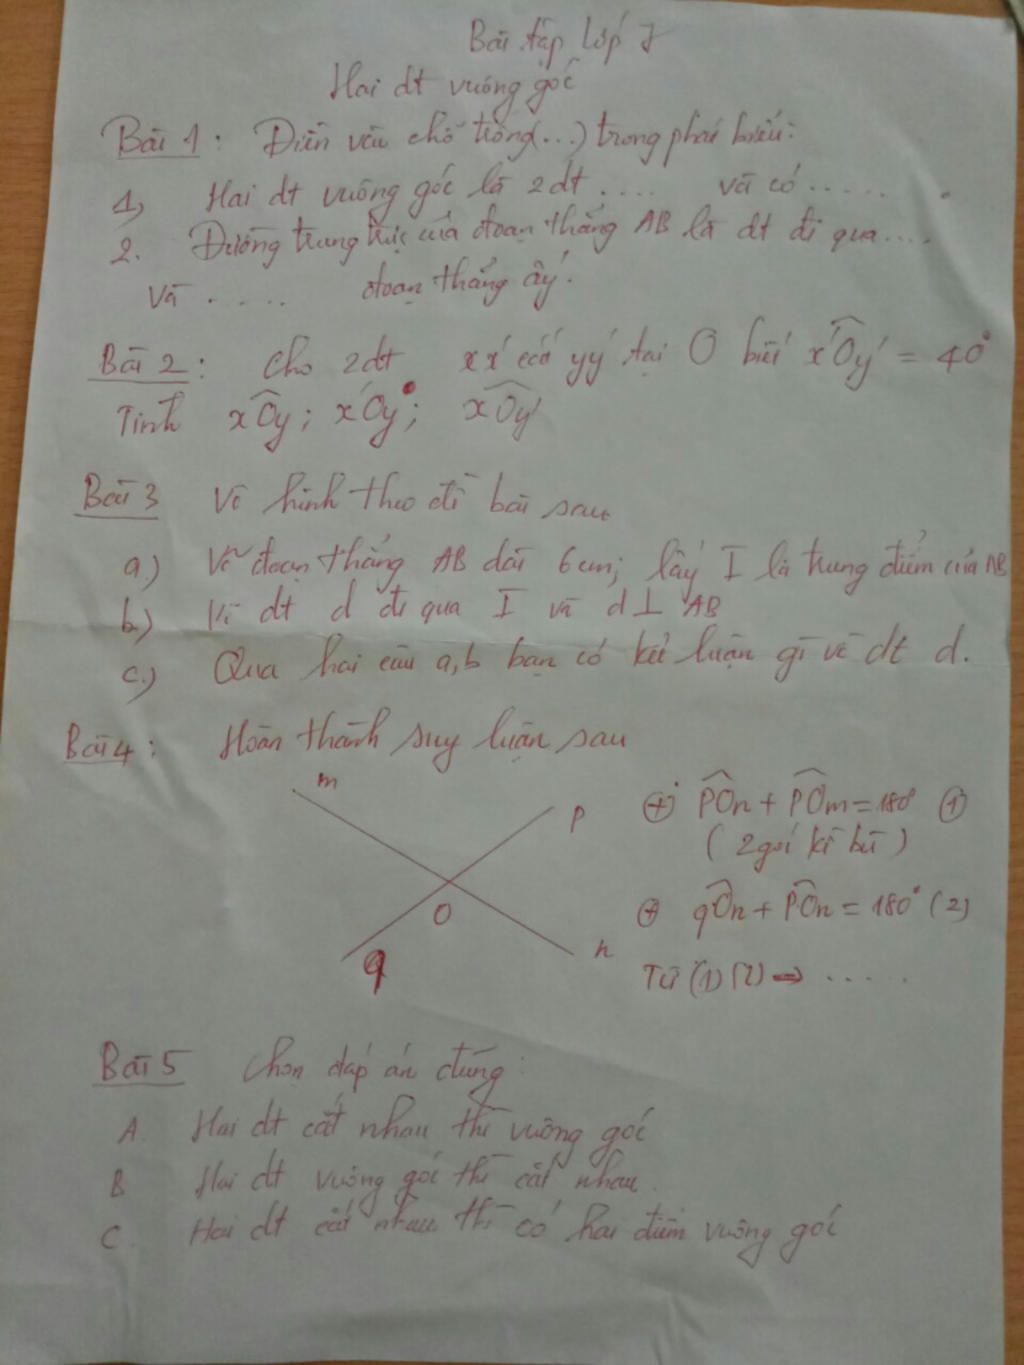 Bài tập lớp 7
Hai dt vuông góc
Bài 1: Điền vào chỗ trống(...) trong phát biểu:
1, Hai dt vuông góc là 2dt .... và có .....
2. Đường trung trực của đoạn thẳng AB là dt đi qua....
và ..... đoạn thẳng ấy.
Bài 2: Cho 2dt xx' cắt yy' tại O biết x'Oy' = 40°
Tính xOy; x'Oy; xOy'
Bài 3 Vẽ hình theo đề bài sau
a.) Vẽ đoạn thẳng AB dài 6cm; lấy I là trung điểm của AB
b.) Vẽ dt d đi qua I và d⊥ AB
c.) Qua hai câu a,b bạn có kết luận gì về dt d.
Bài 4: Hoàn thành suy luận sau
m
p
O
q
n
+ pOn + pOm = 180° (1)
(2 góc kề bù)
+ qOn + pOn = 180° (2)
Từ (1) (2) ⇒ .....
Bài 5 Chọn đáp án đúng:
A. Hai dt cắt nhau thì vuông góc
B Hai dt vuông góc thì cắt nhau.
C. Hai dt cắt nhau thì có hai điểm vuông góc